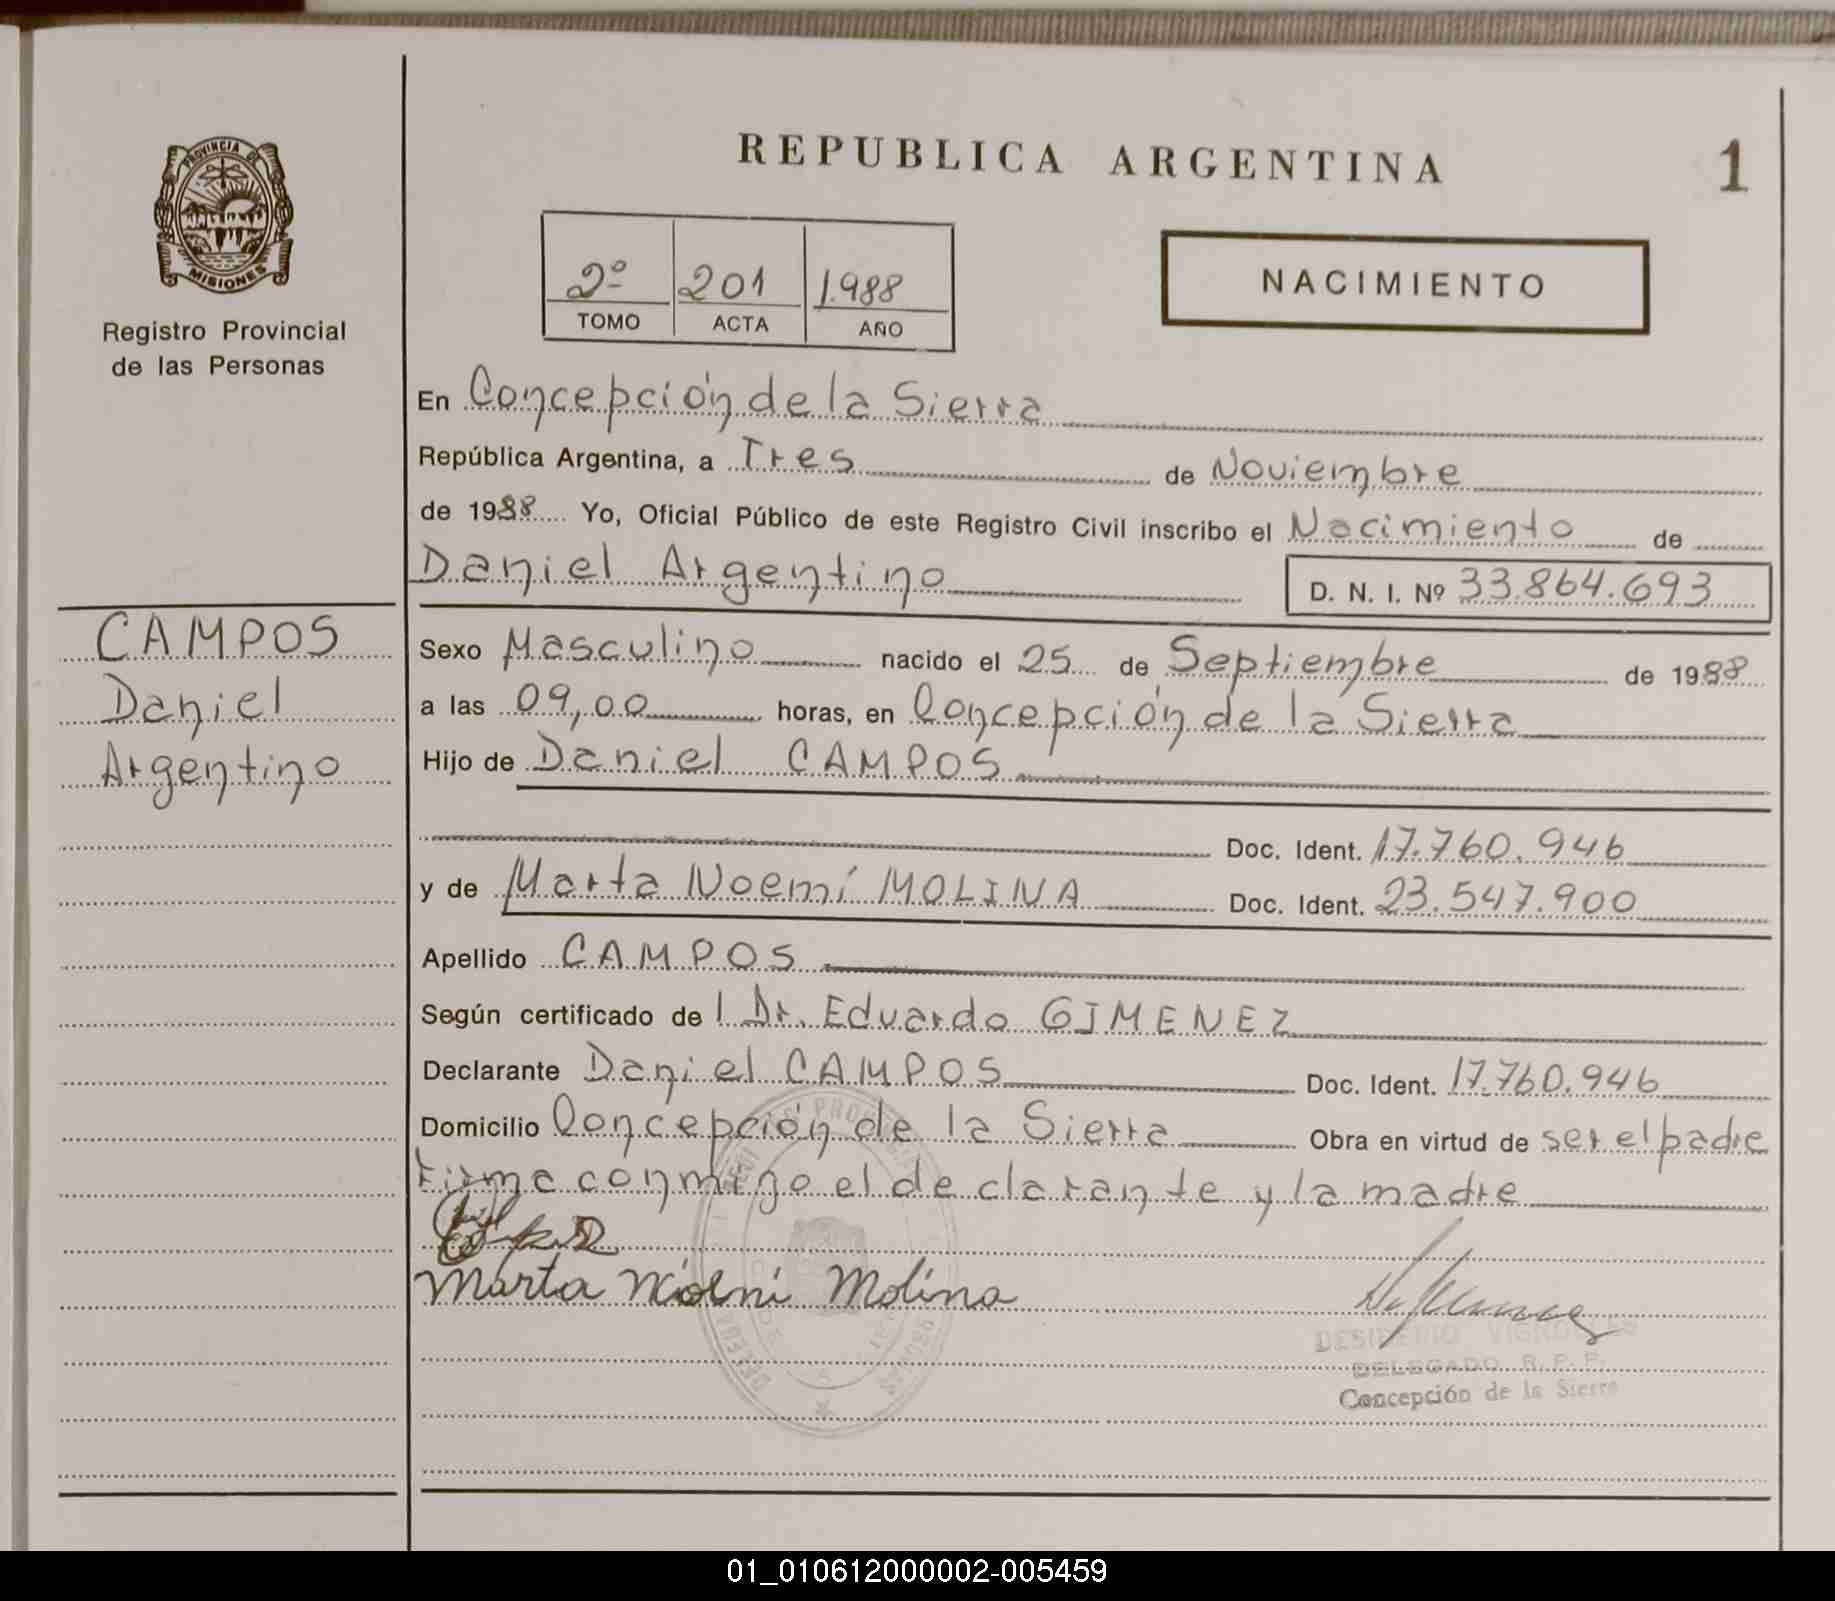 PROVINCIA DE
MISIONES
Registro Provincial
de las Personas
CAMPOS
Daniel
Argentino
REPUBLICA ARGENTINA
1
2º 201 1.988
TOMO ACTA AÑO
NACIMIENTO
En Concepción de la Sierra
República Argentina, a Tres de Noviembre
de 1988 Yo, Oficial Público de este Registro Civil inscribo el Nacimiento de
Daniel Argentino D. N. I. Nº 33.864.693
Sexo Masculino nacido el 25 de Septiembre de 1988
a las 09,00 horas, en Concepción de la Sierra
Hijo de Daniel CAMPOS
Doc. Ident. 17.760.946
y de Marta Noemí MOLINA Doc. Ident. 23.547.900
Apellido CAMPOS
Según certificado de l Dr. Eduardo GIMENEZ
Declarante Daniel CAMPOS Doc. Ident. 17.760.946
Domicilio Concepción de la Sierra Obra en virtud de ser el padre
Firma conmigo el declarante y la madre
Marta Molina
DELEGADO R. P. P.
Concepción de la Sierra
01_010612000002-005459